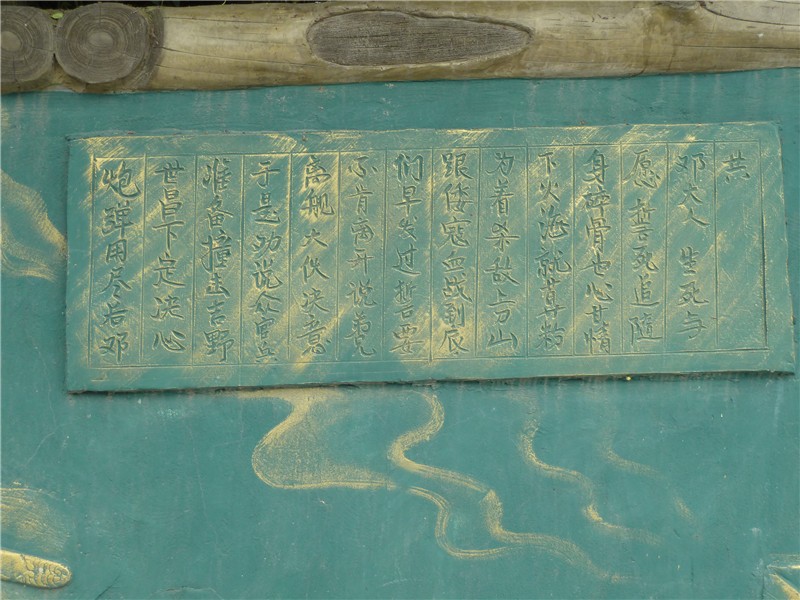 炮弹用尽后邓
世昌下定决心
准备撞击吉野
于是劝说众官兵
离舰大伙决意
不肯离开说弟兄
们早发过誓要
跟倭寇血战到底
为着杀敌上刀山
下火海就算粉
身碎骨也心甘情
愿 誓死追随
邓大人 生死与
共